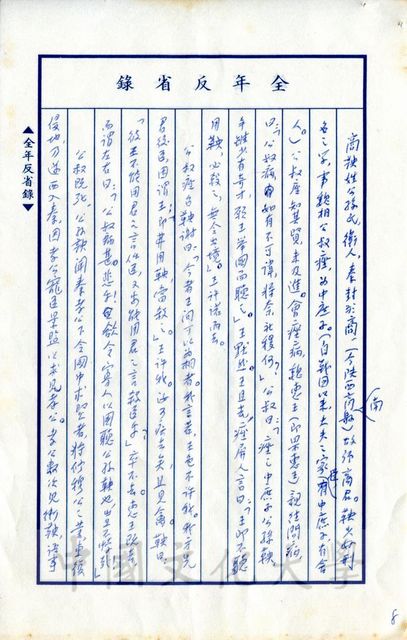 全年反省錄
商鞅姓公孫氏，衛人，秦封於商，（今陝西商縣）故號商君。鞅少好刑
南
名之學，事魏相公叔痤，為中庶子。（自戰國以來大夫之家有中庶子，有舍
人）公叔痤知其賢，未及進。會痤病，魏惠王（即梁惠王）親往問病
曰：「公叔病如有不可諱，將奈社稷何？」公叔曰：「痤之中庶子公孫鞅
年雖少有奇才，願王舉國而聽之。」王默然。王且去，痤屏人言曰：「王即不聽
用鞅，必殺之，無令出境。」王許諾而去。
公叔痤召鞅謝曰：「今者王問可以為相者，我言若，王色不許我。我方先
君後臣，因謂王即弗用鞅，當殺之。王許我。汝可疾去矣，且見禽。」鞅曰：
「彼王不能用君之言任臣，又安能用君之言殺臣乎？」卒不去。惠王既去，
而謂左右曰：「公叔病甚，悲乎！欲令寡人以國聽公孫鞅也，豈不悖哉！」
公叔既死，公孫鞅聞秦孝公下令國中求賢者，將修穆公之業，東復
侵地，乃遂西入秦，因孝公寵臣景監以求見孝公。
▲全年反省錄▼
中國文化大學
8